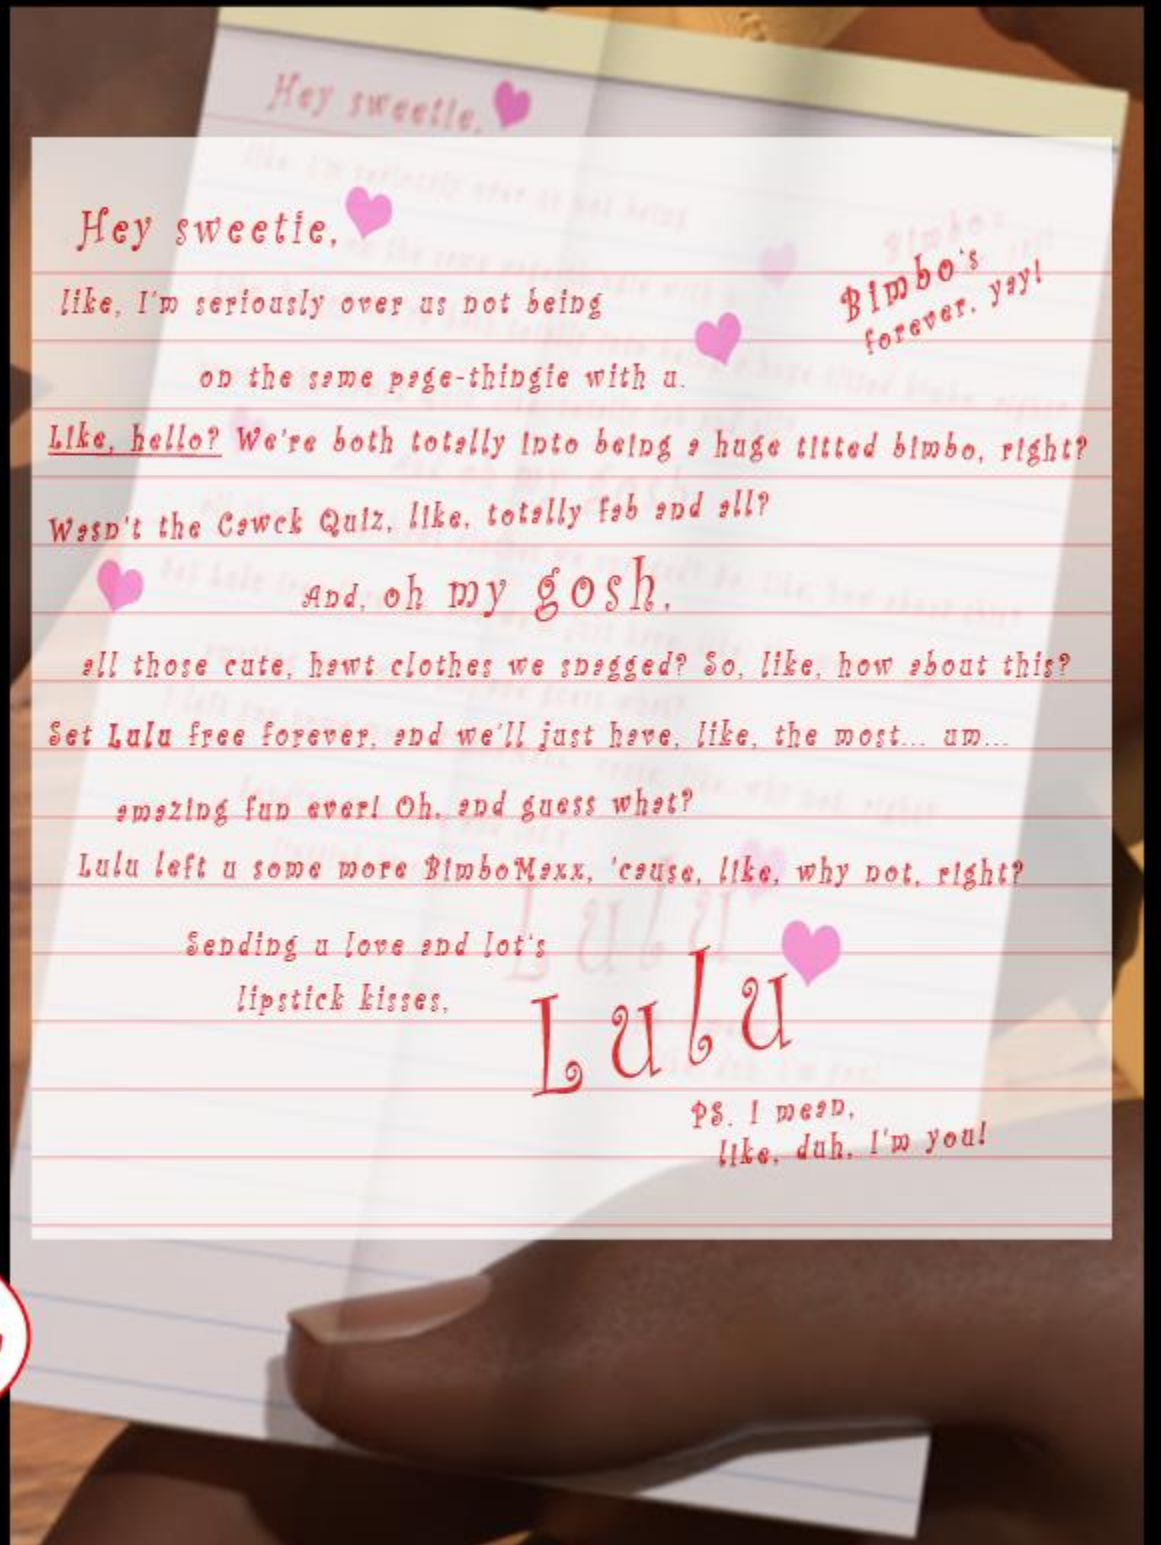 Hey sweetie,
Hey sweetie,
Bimbo's
forever, yay!
like, I'm seriously over us not being
on the same page-thingie with u.
Like, hello? We're both totally into being a huge titted bimbo, right?
Wasn't the Cawck Quiz, like, totally fab and all?
And, oh my gosh,
all those cute, hawt clothes we snagged? So, like, how about this?
Set Lulu free forever, and we'll just have, like, the most... um...
amazing fun ever! Oh, and guess what?
Lulu left u some more BimboMaxx, 'cause, like, why not, right?
Sending u love and lot's
lipstick kisses,
Lulu
PS. I mean,
like, duh, I'm you!